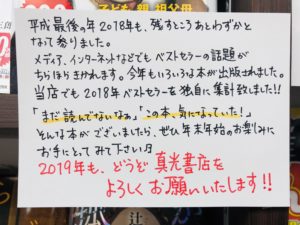 子ども 親 祖父母
平成最後の年2018年も、残すところあとわずかと
なって参りました。
メディア、インターネットなどでもベストセラーの話題が
ちらほらきかれます。今年もいろいろな本が出版されました。
当店でも2018年ベストセラーを独自に集計致しました!!
「まだ読んでないなぁ」「この本、気になっていた!」
そんな本がございましたら、ぜひ年末年始のお楽しみに
お手にとってみて下さい♪
2019年も、どうぞ真光書店を
よろしくお願いいたします!!
辻